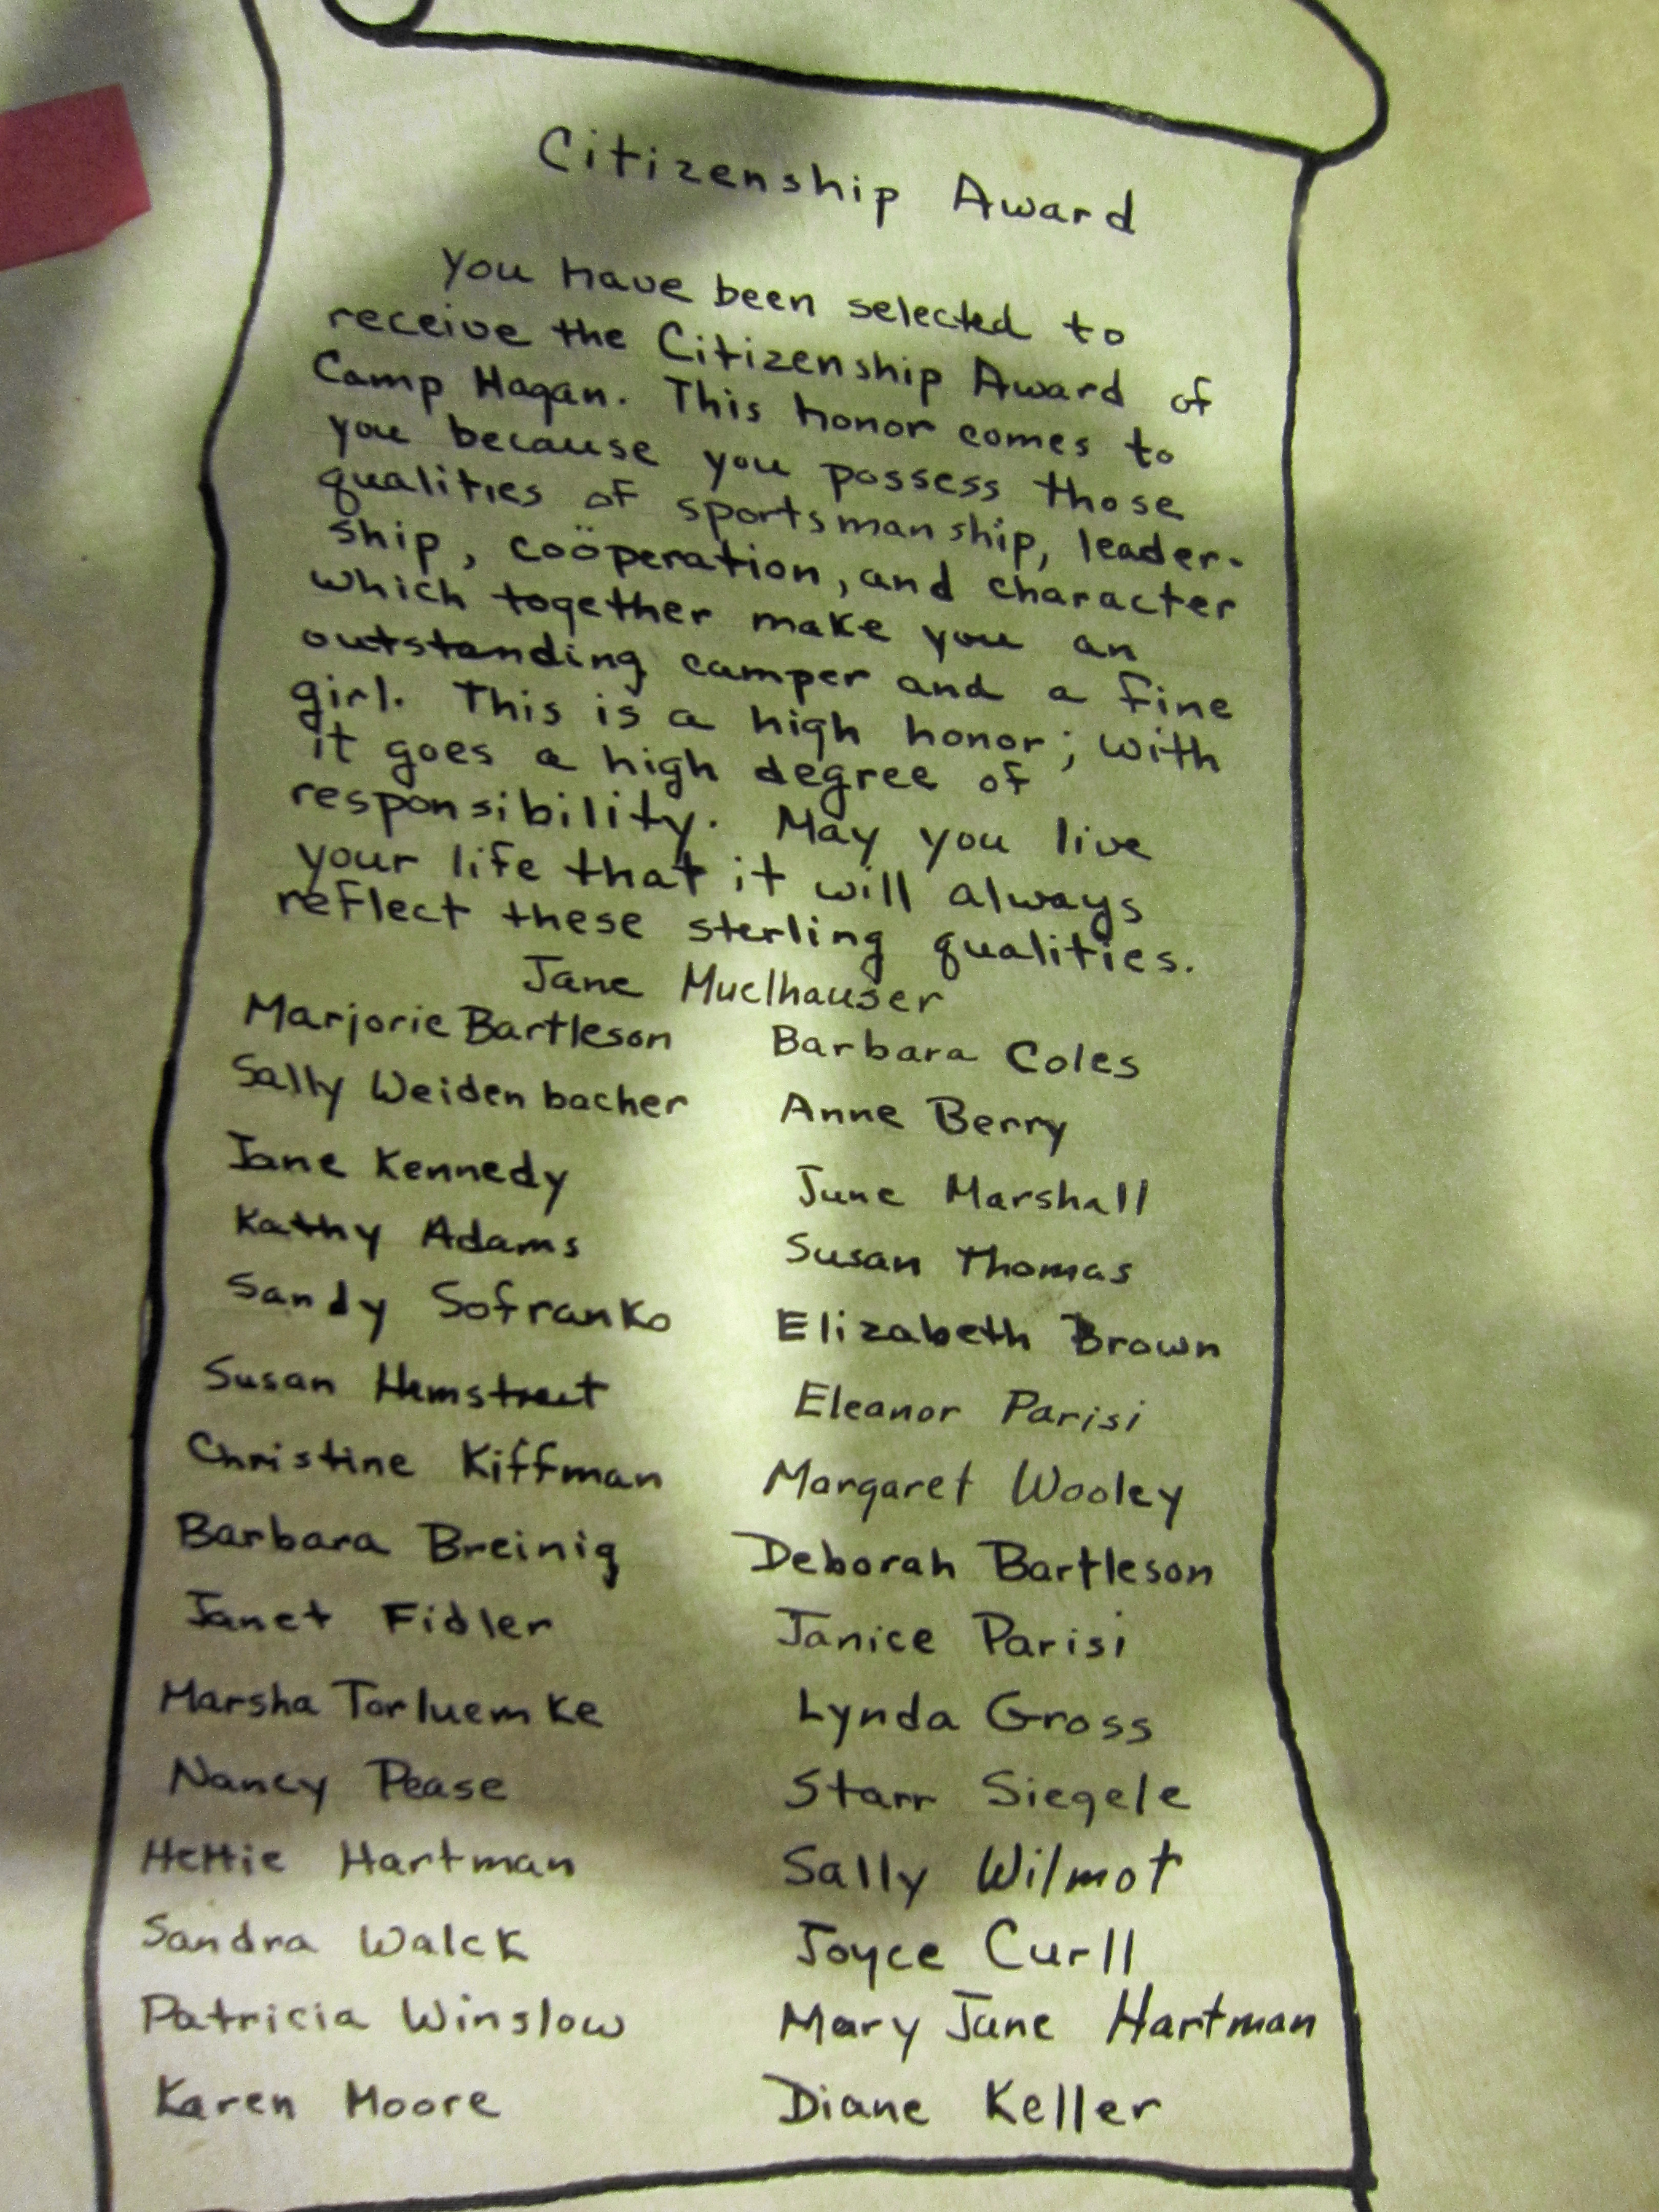 Citizenship Award
You have been selected to
receive the Citizenship Award of
Camp Hagan. This honor comes to
you because you possess those
qualities of sportsmanship, leader-
ship, coöperation, and character
which together make you an
outstanding camper and a fine
girl. This is a high honor; with
it goes a high degree of
responsibility. May you live
your life that it will always
reflect these sterling qualities.
Jane Muelhauser
Marjorie Bartleson Barbara Coles
Sally Weidenbacher Anne Berry
Jane Kennedy June Marshall
Kathy Adams Susan Thomas
Sandy Sofranko Elizabeth Brown
Susan Hemstreet Eleanor Parisi
Christine Kiffman Margaret Wooley
Barbara Breinig Deborah Bartleson
Janet Fidler Janice Parisi
Marsha Torluemke Lynda Gross
Nancy Pease Starr Siegele
Hettie Hartman Sally Wilmot
Sandra Walck Joyce Curll
Patricia Winslow Mary Jane Hartman
Karen Moore Diane Keller